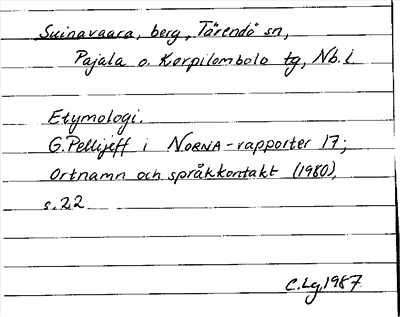 Suinavaara, berg, Tärendö sn,
Pajala o. Korpilombolo tg, Nb. l.
Etymologi.
G. Pellijeff i NORNA-rapporter 17;
Ortnamn och språkkontakt (1980),
s. 22
C. Lg. 1987